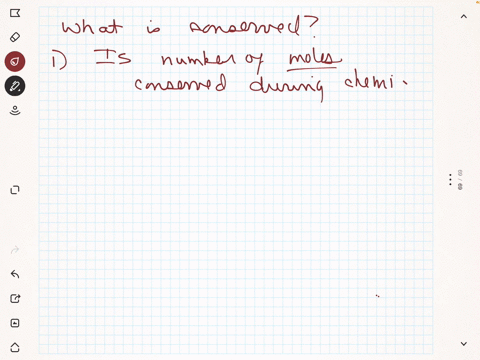 What is conserved?
1) Is number of moles
conserved during chemi